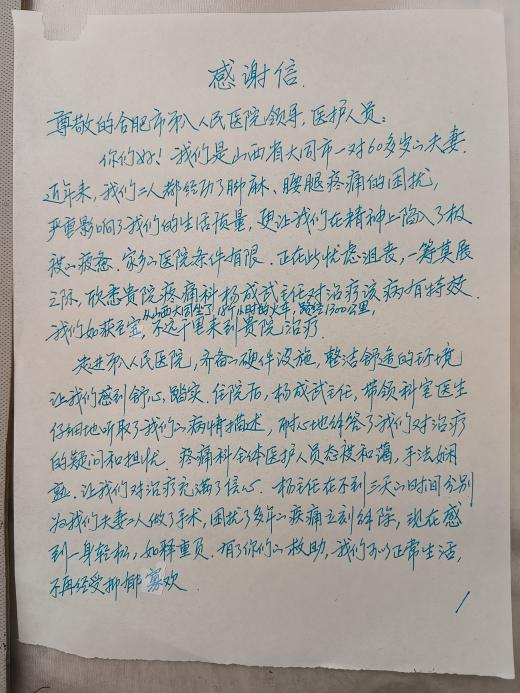 感谢信
尊敬的合肥市第八人民医院领导、医护人员:
你们好!我们是山西省大同市一对60多岁的夫妻.
近年来,我们二人都经历了脚麻、腰腿疼痛的困扰,
严重影响了我们的生活质量,更让我们在精神上陷入了极
被的疲惫.家乡的医院条件有限.正在忧虑沮丧,一筹莫展
之际,欣悉贵院疼痛科杨成武主任对治疗该病有特效.
从山西大同坐了18个小时的火车,跨经1300公里,
我们如获至宝,不远千里来到贵院治疗.
走进第八人民医院,齐备的硬件设施,整洁舒适的环境
让我们感到舒心,踏实.住院后,杨成武主任,带领科室医生
仔细地听取了我们的病情描述,耐心地解答了我们对治疗
的疑问和担忧.疼痛科全体医护人员态度和蔼,手法娴
熟.让我们对治疗充满了信心.杨主任在不到三天的时间分别
为我们夫妻二人做了手术,困扰了多年的疼痛立刻解除,现在感
到一身轻松,如释重负.有了你们的救助,我们可以正常生活,
不再经受抑郁寡欢.